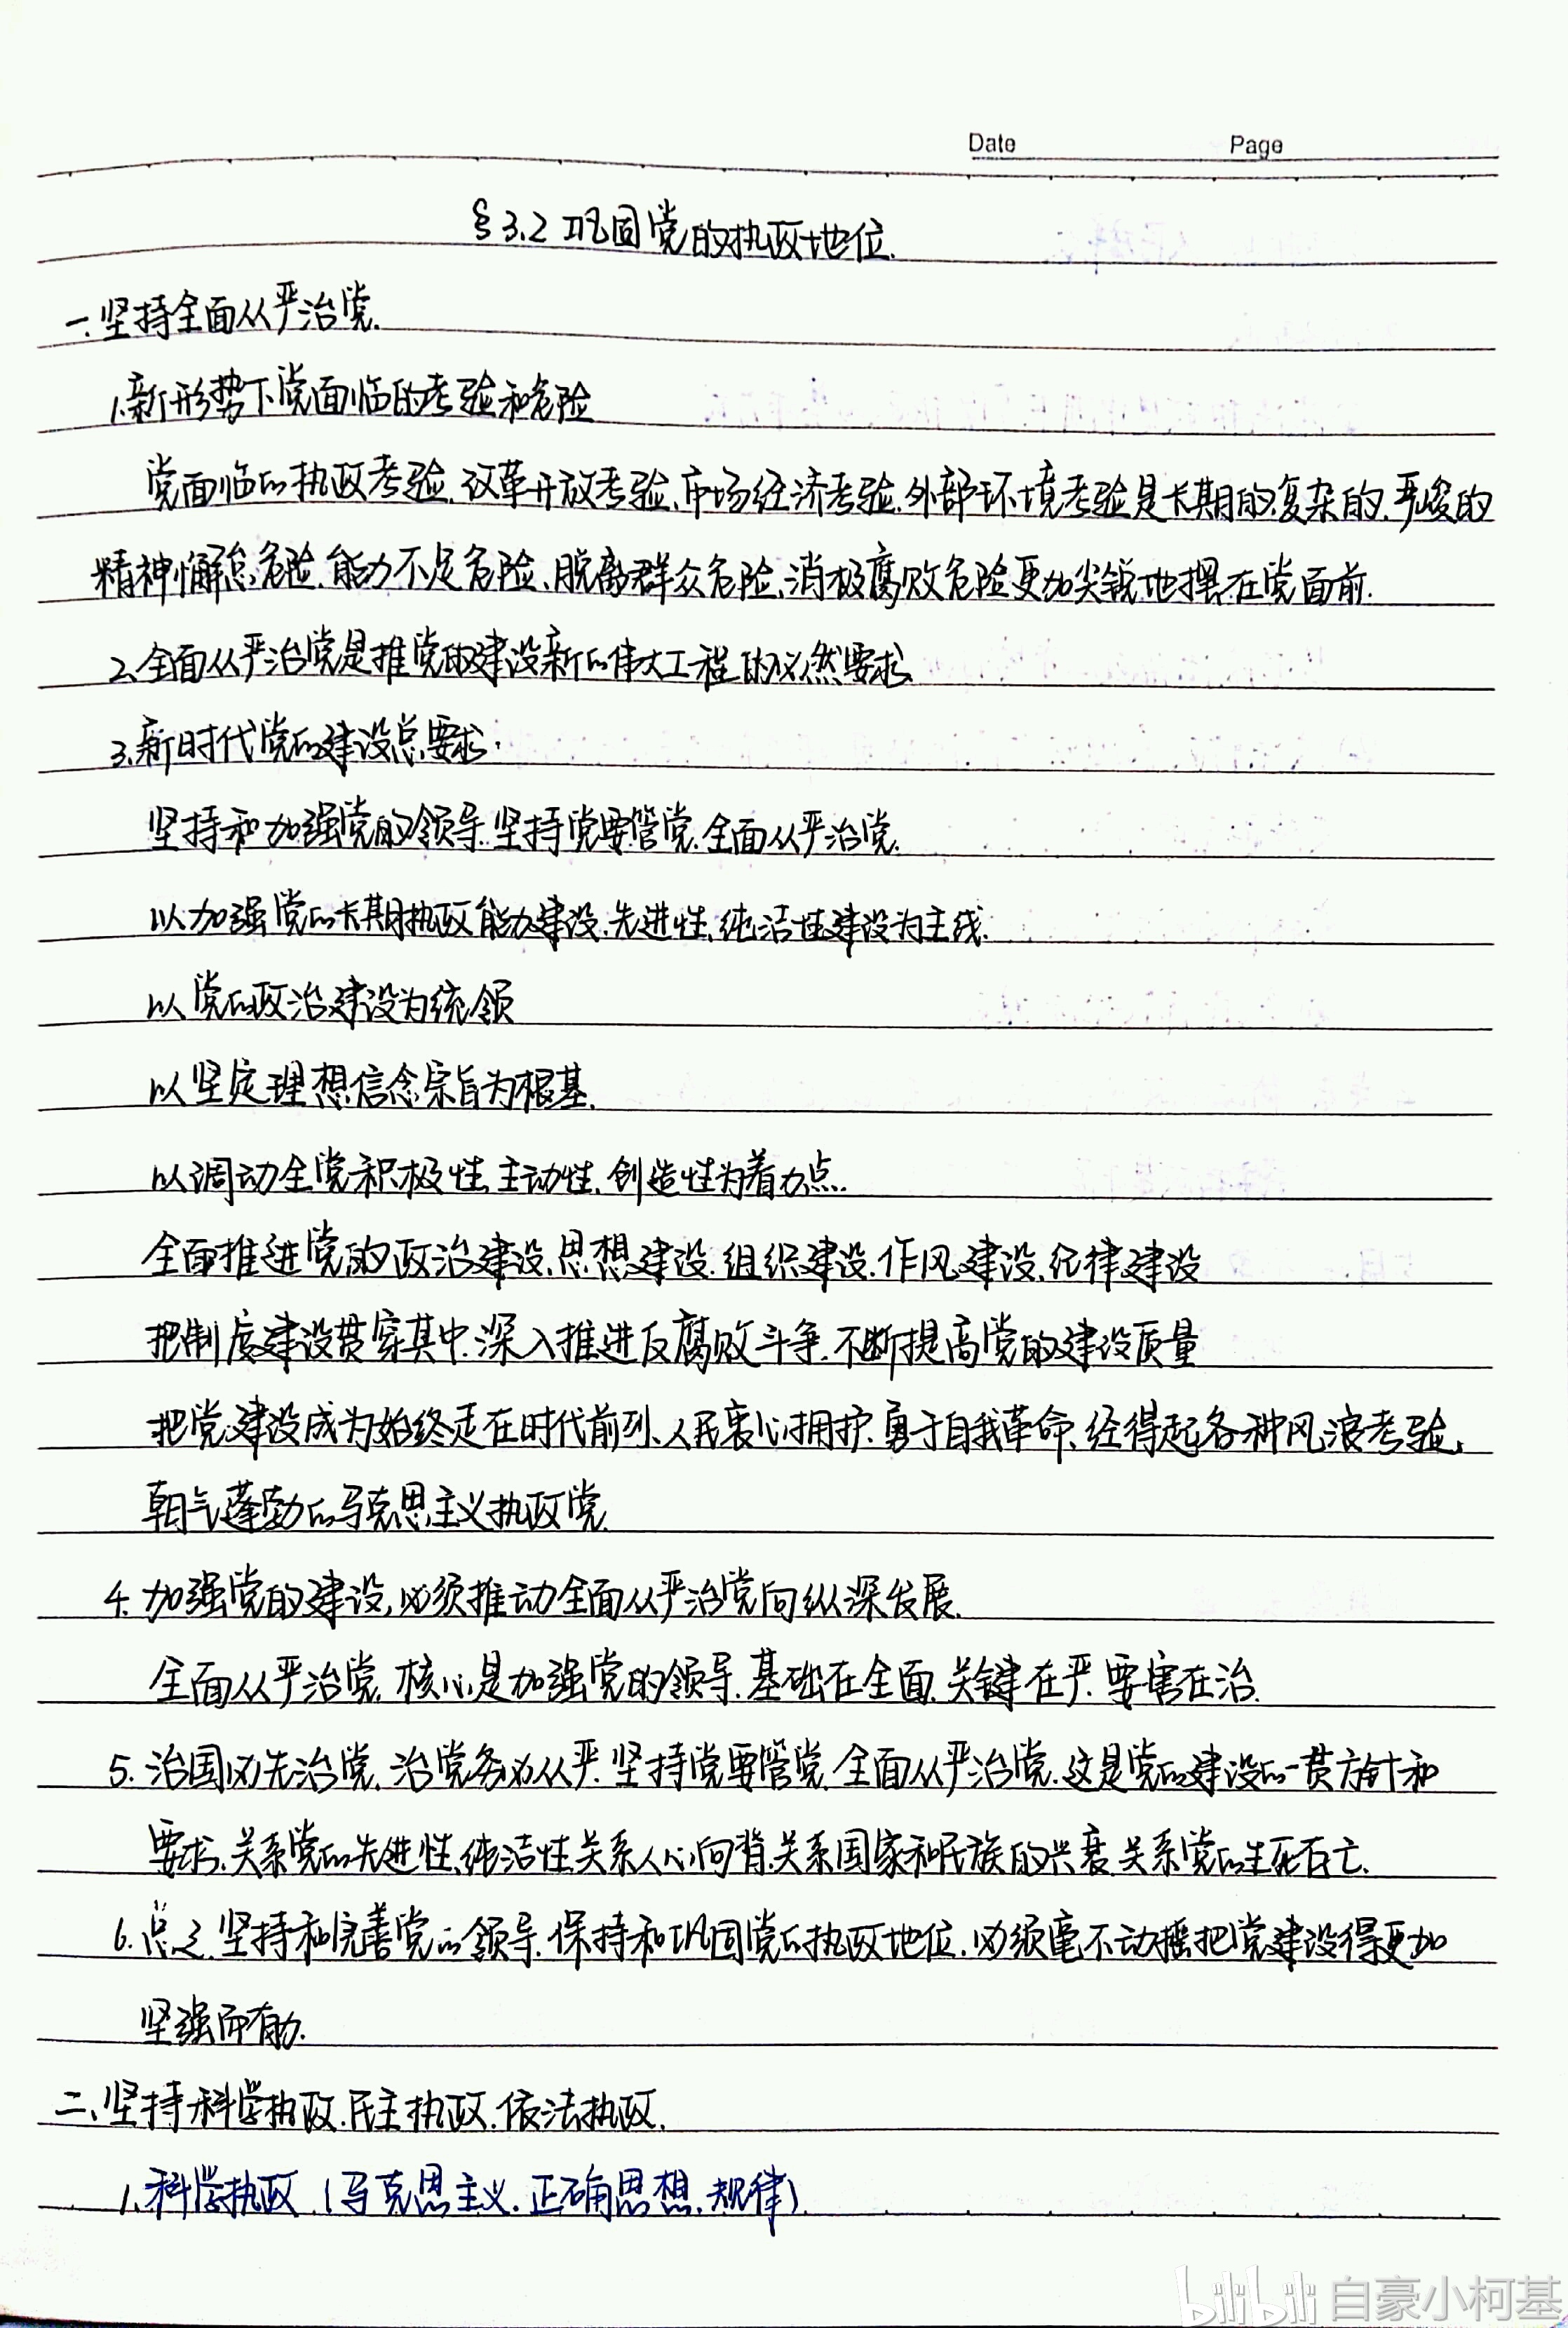 Date Page
§3.2 巩固党的执政地位.
一.坚持全面从严治党.
1.新形势下党面临的考验和危险
党面临的执政考验、改革开放考验、市场经济考验、外部环境考验是长期的、复杂的、严峻的
精神懈怠危险、能力不足危险、脱离群众危险、消极腐败危险更加尖锐地摆在党面前.
2.全面从严治党是推党的建设新的伟大工程的必然要求.
3.新时代党的建设总要求:
坚持和加强党的领导.坚持党要管党.全面从严治党.
以加强党的长期执政能力建设、先进性、纯洁性建设为主线.
以党的政治建设为统领
以坚定理想信念宗旨为根基.
以调动全党积极性、主动性、创造性为着力点.
全面推进党的政治建设、思想建设、组织建设、作风建设、纪律建设
把制度建设贯穿其中.深入推进反腐败斗争.不断提高党的建设质量
把党建设成为始终走在时代前列、人民衷心拥护、勇于自我革命、经得起各种风浪考验、
朝气蓬勃的马克思主义执政党.
4.加强党的建设,必须推动全面从严治党向纵深发展.
全面从严治党,核心是加强党的领导.基础在全面.关键在严.要害在治.
5.治国必先治党,治党务必从严.坚持党要管党,全面从严治党.这是党的建设的一贯方针和
要求.关系党的先进性、纯洁性.关系人心向背.关系国家和民族的兴衰.关系党的生死存亡.
6.总之.坚持和完善党的领导.保持和巩固党的执政地位.必须毫不动摇把党建设得更加
坚强而有力.
二、坚持科学执政.民主执政.依法执政.
1.科学执政(马克思主义.正确思想.规律)
bilibili 自豪小柯基